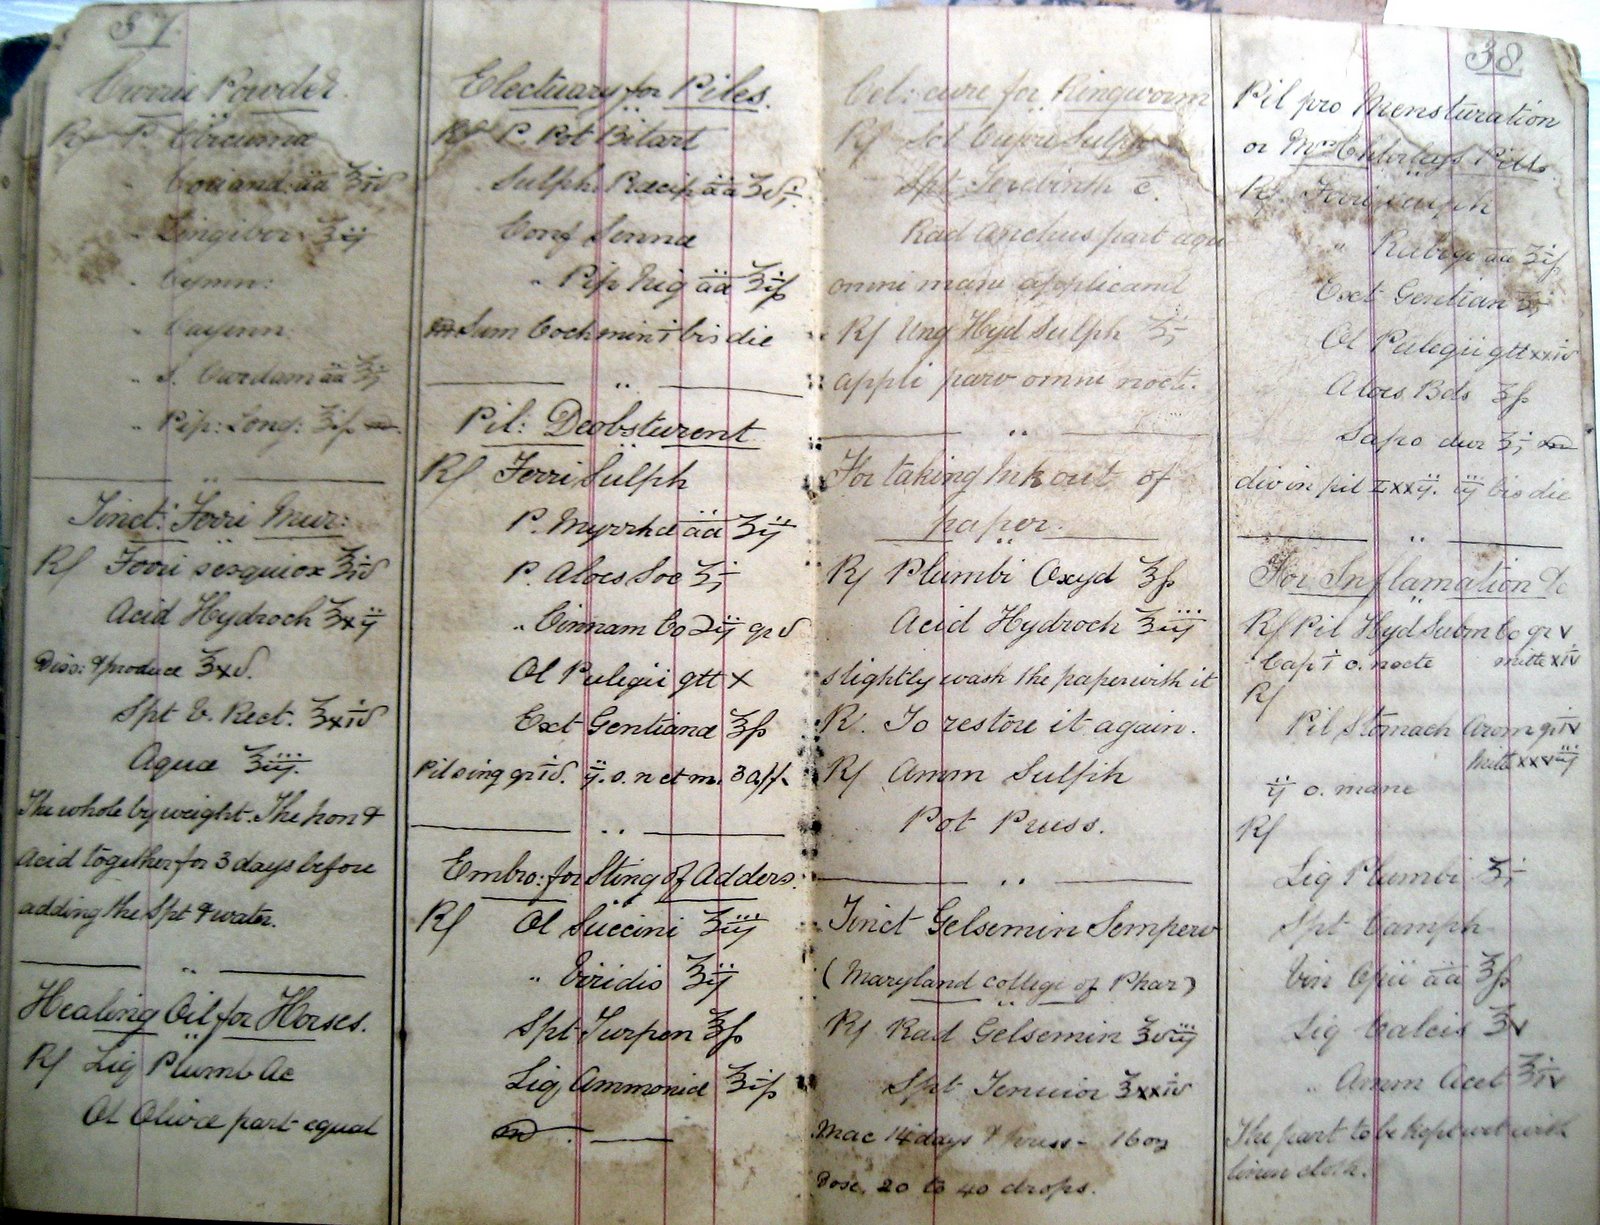 37.
Currie Powder.
Rf P. Curcumæ
" Coriand: āā ℥iv
" Zingiber: ℥ij
" Cymin:
" Cayenn:
" S. Cardam āā ℥j
" Pip: Long: ℥ifs
Tinct: Ferri Mur:
Rf Ferri sesquiox ℥iv
Acid Hydroch ℥xij
Diss: & produce ℥xv.
Spt V. Rect. ℥xiv
Aquæ ℥iij.
The whole by weight. The Iron &
Acid together for 3 days before
adding the Spt & water.
Healing Oil for Horses.
Rf Liq Plumb Ac
Ol Olivæ part equal
Electuary for Piles.
Rf P. Pot Bitart
Sulph. Præcip āā ʒvj.
Conf Sennæ
" Pip Nig āā ℥ifs
Sum Coch min i bis die
Pil: Deobsturent
Rf Ferri Sulph
P. Myrrhæ āā ʒij
P. Aloes Soc ʒj
" Cinnam Co ℈ij gr v
Ol Pulegii gtt x
Ext Gentianæ ʒfs
Pil sing gr iv. ij. o. n et m.
Embro: for Sting of Adders.
Rf Ol Succini ʒiij
" Viridis ʒij
Spt Turpen ℥fs
Liq Ammoniæ ℥ifs
38
Cel: cure for Ringworm
Rf Sol Cupri Sulph
Spt Terebinth c̄.
Rad Anchus part aqu
omni mane applicand
Rf Ung Hyd Sulph ℥j
appli parv omni nocte.
For taking Ink out of
paper.
Rf Plumbi Oxyd ℥fs
Acid Hydroch ℥iij
slightly wash the paper with it
R. To restore it again.
Rf Amm Sulph
Pot Pruss.
Tinct Gelsemin Semperv
(Maryland college of Phar)
Rf Rad Gelsemin ℥viij
Spt Tenuior ℥xxiv
Mac 14 days & press - 16 oz
Dose, 20 to 40 drops.
Pil pro Mensturation
or Mrs Pills.
Rf Ferri Sulph
" Rubigo āā ʒifs
Ext Gentian
Ol Pulegii gtt xxiv
Aloes Bds ʒfs
Sapo dur ʒj
div in pil Lxxij. iij bis die
For Inflamation &c
Rf Pil Hyd Subm Co gr v
Cap i o. nocte mitte xiv
Rf
Pil Stomach Arom gr iv
Mitte xxviij
ij o. mane
Rf
Liq Plumbi ℥j
Spt Camph
Vin Opii āā ℥fs
Liq Calcis ℥v
" Amm Acet ℥iv
The part to be kept wet with
linen cloth.